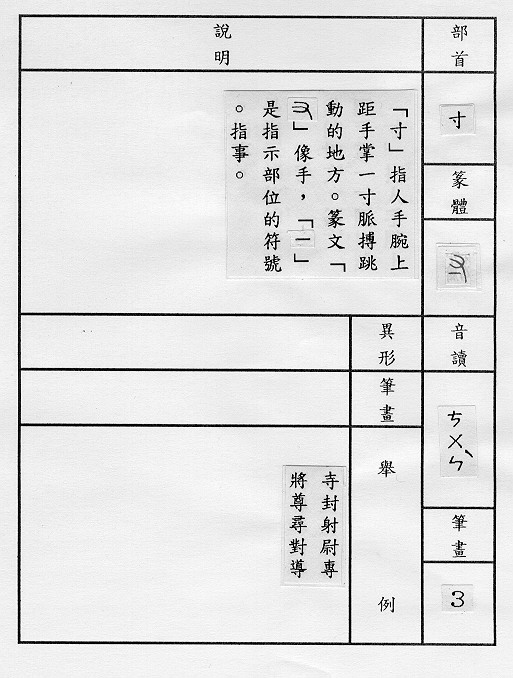 部首
寸
篆體
音讀
ㄘㄨㄣˋ
筆畫
3
說明
「寸」指人手腕上
距手掌一寸脈搏跳
動的地方。篆文「
」像手，「一」
是指示部位的符號
。指事。
異形
筆畫
舉例
寺封射尉專
將尊尋對導